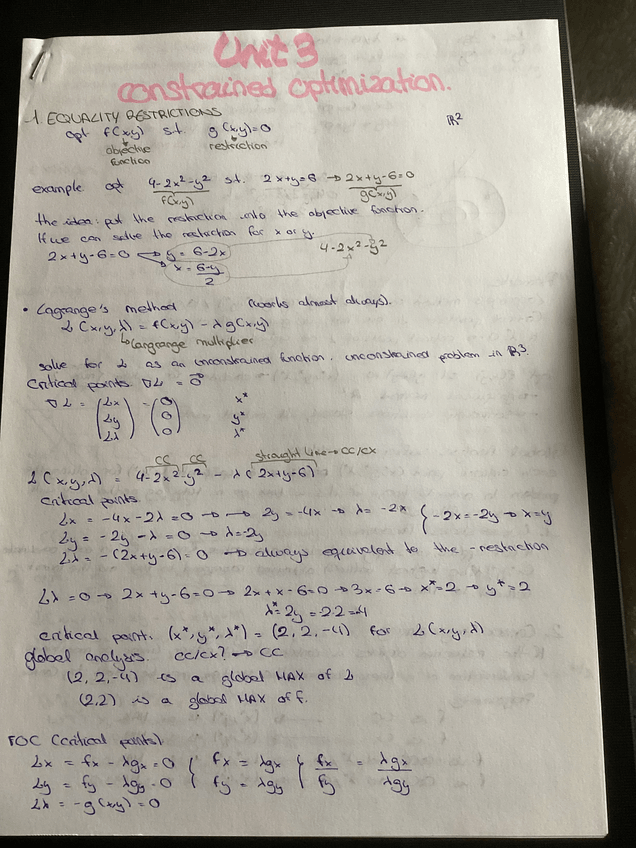 Unit 3
constrained optimization.
1. EQUALITY RESTRICTIONS
opt f(x,y) s.t. g(x,y)=0 ℝ²
objective function restriction
example opt 4-2x²-y² s.t. 2x+y=6 → 2x+y-6=0
f(x,y) g(x,y)
the idea: put the restriction into the objective function.
If we can solve the restriction for x or y.
2x+y-6=0 → y = 6-2x 4-2x²-y²
x = 6-y / 2
• Lagrange's method (works almost always).
L(x,y,λ) = f(x,y) - λ g(x,y)
↳ Langrange multiplier
solve for L as an unconstrained function. unconstrained problem in ℝ3
Critical points. ∇L = 0⃗
∇L = (Lx Ly Lλ) = (0 0 0) x* y* λ*
CC CC straught line → CC/CX
L(x,y,λ) = 4-2x²-y² - λ(2x+y-6)
critical points.
Lx = -4x-2λ=0 → → 2λ = -4x → λ = -2x { -2x=-2y → x=y
Ly = -2y-λ=0 → λ=-2y
Lλ = -(2x+y-6)=0 → always equivalent to the restriction
Lλ=0 → 2x+y-6=0 → 2x+x-6=0 → 3x=6 → x*=2 → y*=2
λ*=-2y = -2·2=-4
critical point: (x*,y*,λ*) = (2,2,-4) for L(x,y,λ)
global analysis. CC/CX? → CC
(2,2,-4) is a global MAX of L
(2,2) is a global MAX of f.
FOC (critical points).
Lx = fx - λgx = 0 { fx = λgx { fx/fy = λgx/λgy
Ly = fy - λgy = 0 { fy = λgy
Lλ = -g(x,y) = 0